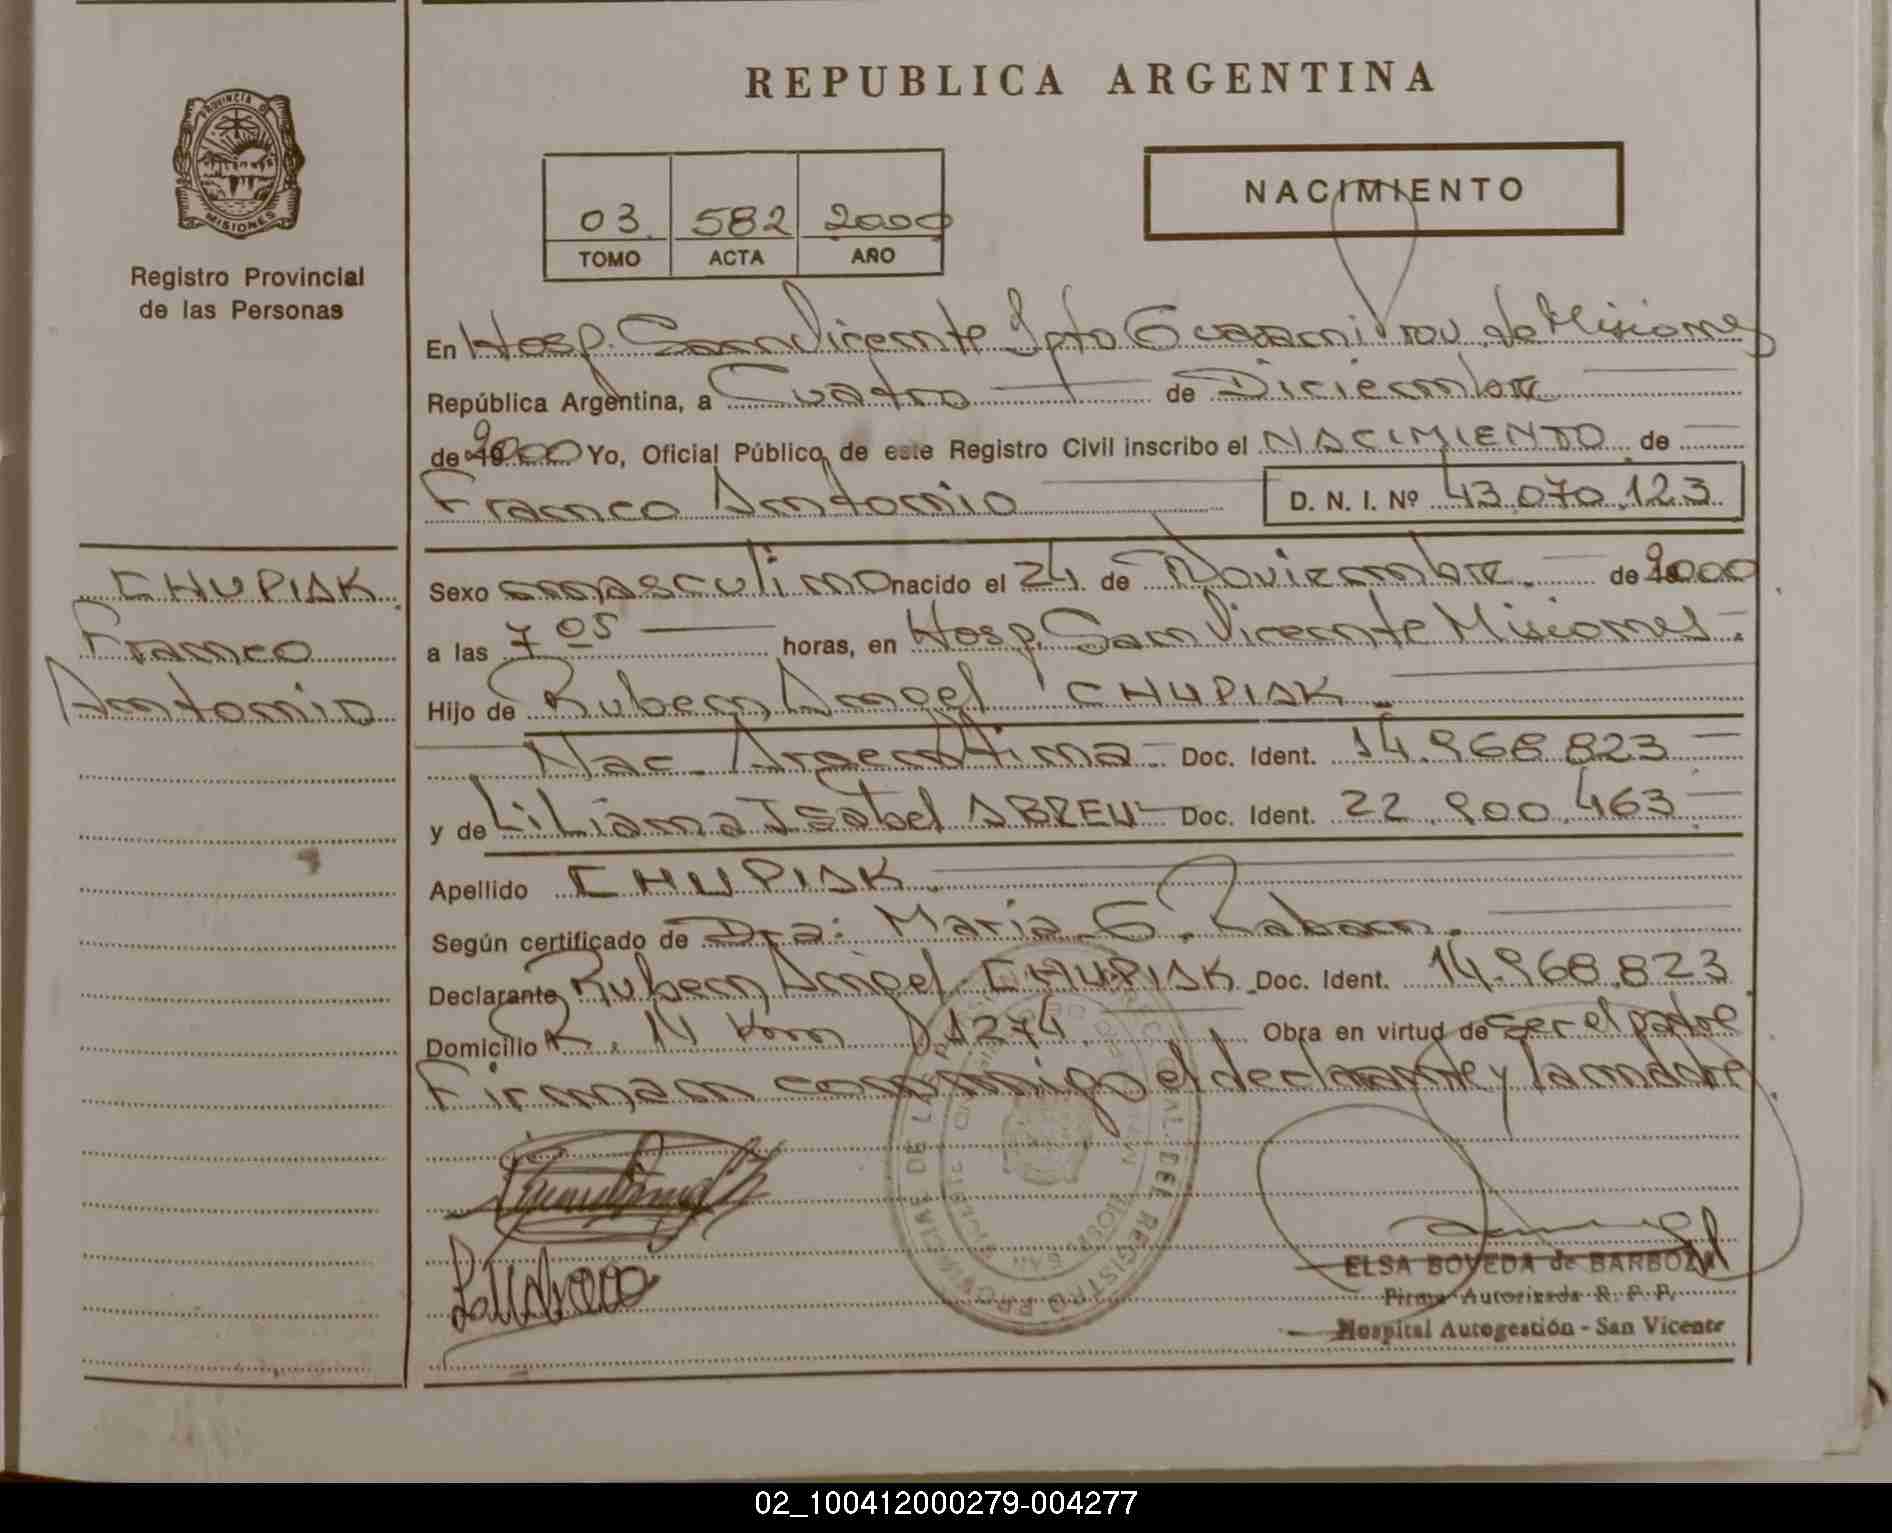 REPUBLICA ARGENTINA
PROVINCIA DE
MISIONES
Registro Provincial
de las Personas
03 582 2000
TOMO ACTA AÑO
NACIMIENTO
En Hosp. San Vicente Dpto Guarani Prov. de Misiones
República Argentina, a Cuatro de Diciembre
de 2000 Yo, Oficial Público de este Registro Civil inscribo el NACIMIENTO de
Franco Antonio D. N. I. Nº 43.070.123
CHUPIAK
Franco
Antonio
Sexo masculino nacido el 24 de Noviembre de 2000
a las 7 05 horas, en Hosp. San Vicente Misiones
Hijo de Ruben Angel CHUPIAK
Nac. Argentina Doc. Ident. 14.968.823
y de Liliana Isabel ABREU Doc. Ident. 22.900.463
Apellido CHUPIAK
Según certificado de Dra: Maria G. Raban
Declarante Ruben Angel CHUPIAK Doc. Ident. 14.968.823
Domicilio R. N Km 1274 Obra en virtud de ser el padre
Firman conmigo el declarante y la madre
ELSA BOVEDA de BARBOZA
Firma Autorizada R. P. P.
Hospital Autogestión - San Vicente
02_100412000279-004277